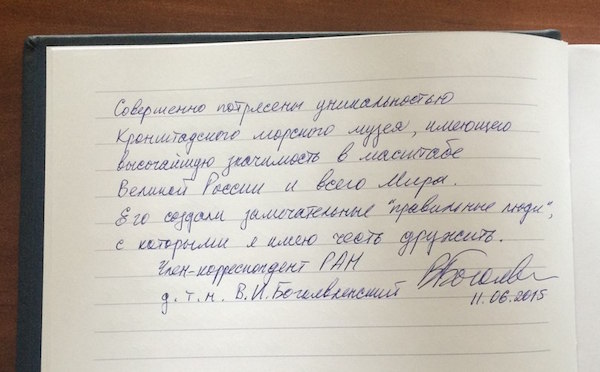 Совершенно потрясены уникальностью
Кронштадского морского музея, имеющего
высочайшую значимость в масштабе
Великой России и всего Мира.
Его создали замечательные "правильные люди",
с которыми я имею честь дружить.
Член-корреспондент РАН
д.т.н. В.И. Богоявленский
11.06.2015